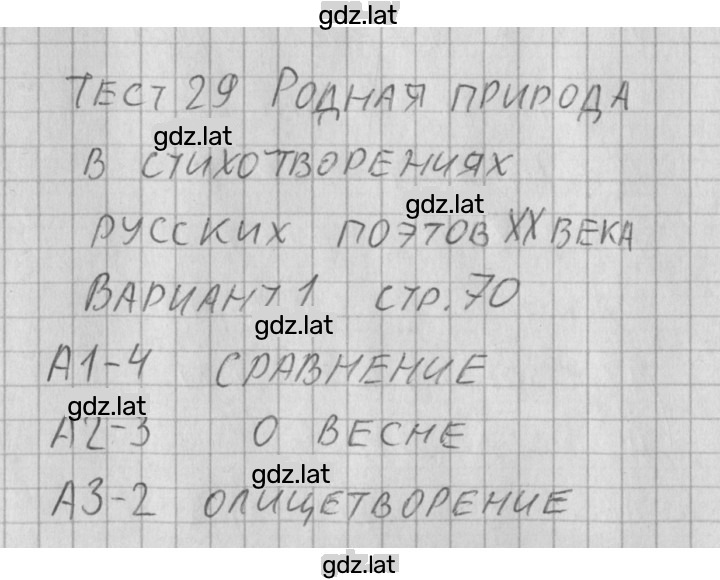 gdz.lat
ТЕСТ 29 РОДНАЯ ПРИРОДА
gdz.lat
В СТИХОТВОРЕНИЯХ
gdz.lat
РУССКИХ ПОЭТОВ XX ВЕКА
ВАРИАНТ 1 СТР. 70
gdz.lat
А1-4 СРАВНЕНИЕ
gdz.lat
А2-3 О ВЕСНЕ
gdz.lat
А3-2 ОЛИЦЕТВОРЕНИЕ
gdz.lat